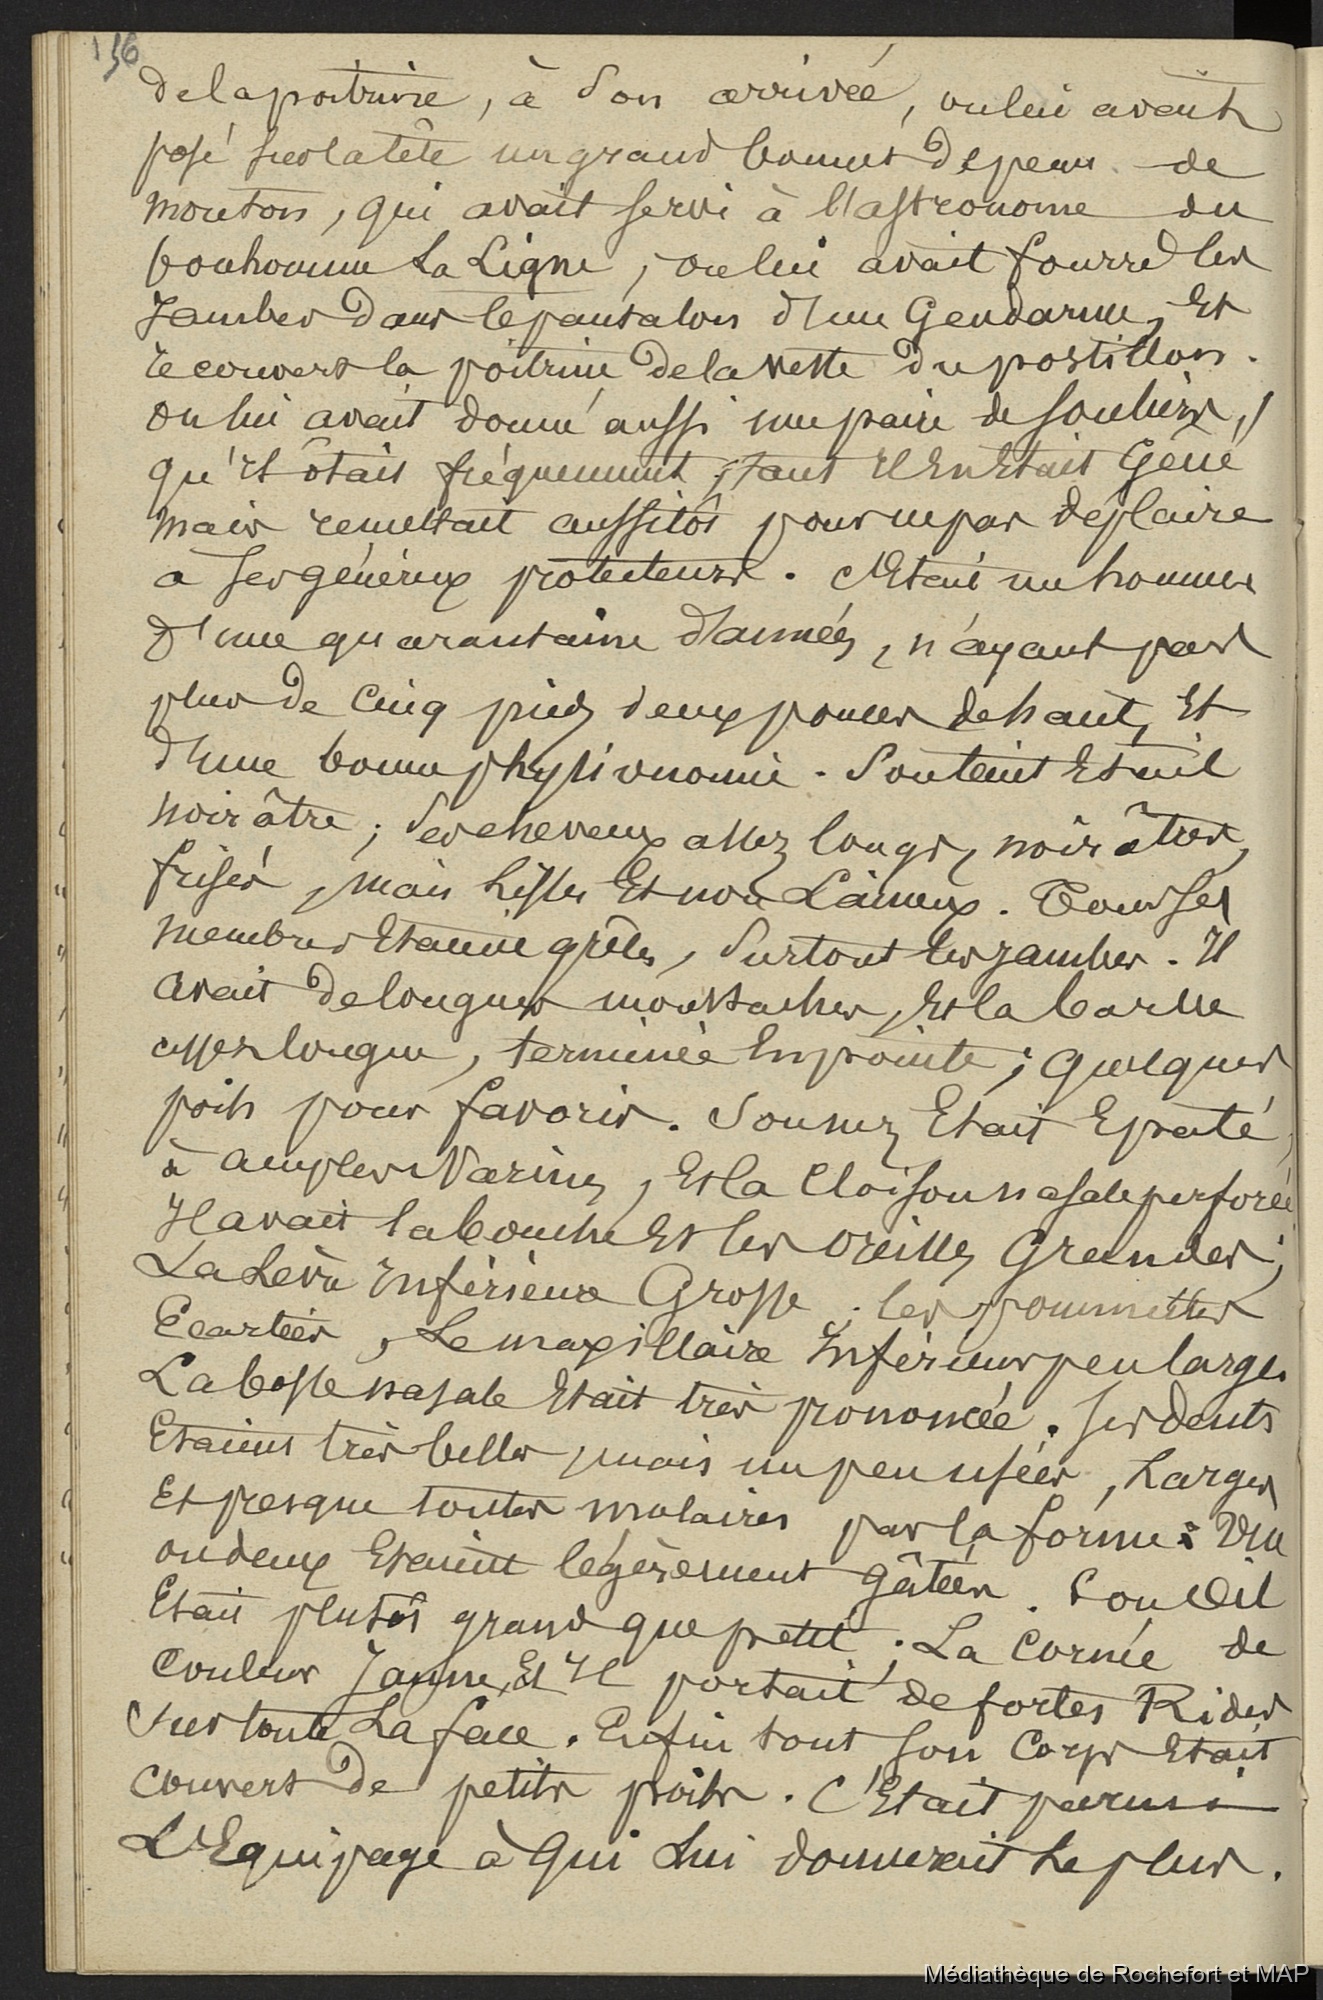 136
de la poitrine, à son arrivée, on lui avait
posé sur la tête un grand bonnet de peau de
mouton, qui avait servi à l'astronome du
bonhomme La Ligne, on lui avait fourré les
Jambes dans le pantalon d'un Gendarme, Et
recouvert la poitrine de la veste du postillon.
on lui avait donné aussi une paire de souliers,
qu'Il ôtait fréquemment, tant Il En Etait Gêné
mais remettait aussitôt pour ne pas déplaire
à ses généreux protecteurs. C'Etait un homme
d'une quarantaine d'années, n'ayant pas
plus de Cinq pieds deux pouces de haut, Et
d'une bonne physionomie. Son teint Etait
noirâtre; Ses cheveux assez longs, noirâtres,
frisés, mais lisses Et non Laineux. Tous Ses
membres Etaient grêles, Surtout les jambes. Il
avait de longues moustaches, Et la barbe
assez longue, terminée En pointe; quelques
poils pour favoris. Son nez Etait Epaté,
à amples Narines, Et la Cloison nasale perforée
Il avait la bouche Et les oreilles Grandes;
La Lèvre Inférieure Grosse; les pommettes
Ecartées, Le maxillaire Inférieur peu large.
La bosse nasale Etait très prononcée. Ses dents
Etaient très belles, mais un peu usées, Larges
Et presque toutes molaires par la forme: Une
ou deux Etaient légèrement gâtées. Son Oeil
Etait plutôt grand que petit; La Cornée de
Couleur Jaune, Et Il portait de fortes Rides
Sur toute La face. Enfin tout son Corps Etait
Couvert de petits poils. C'Etait parmi
L'Equipage à qui Lui donnerait Le plus.
Médiathèque de Rochefort et MAP